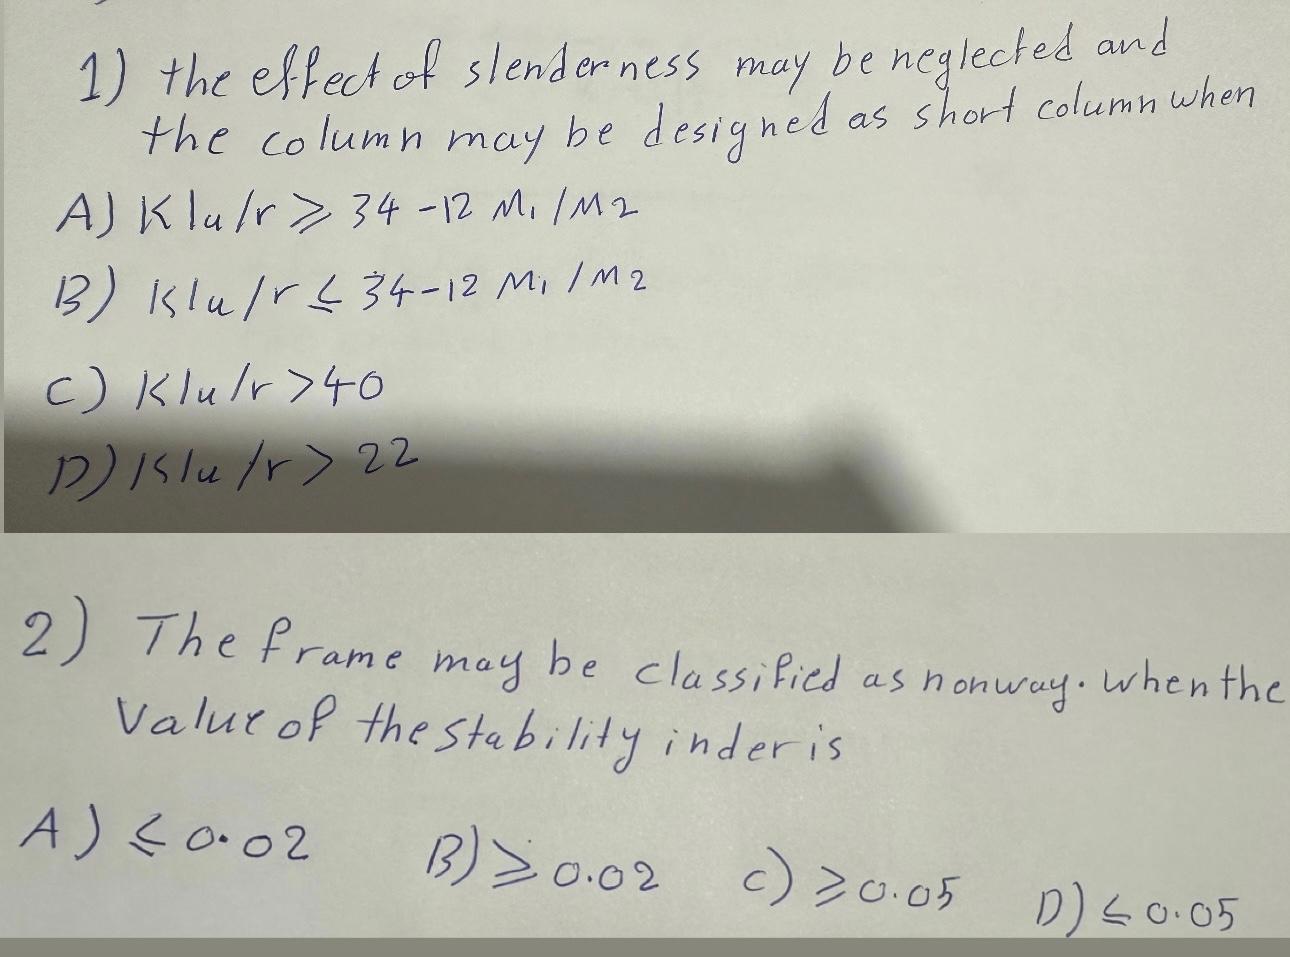 1) the effect of slenderness may be neglected and
the column may be designed as short column when
A) Klu/r ⩾ 34 - 12 M1/M2
B) Klu/r ≤ 34-12 M1/M2
C) Klu/r > 40
D) Klu/r > 22
2) The frame may be classified as nonway. when the
Value of the stability inder is
A) ⩽ 0.02 B) ⩾ 0.02 C) ⩾ 0.05 D) ≤ 0.05